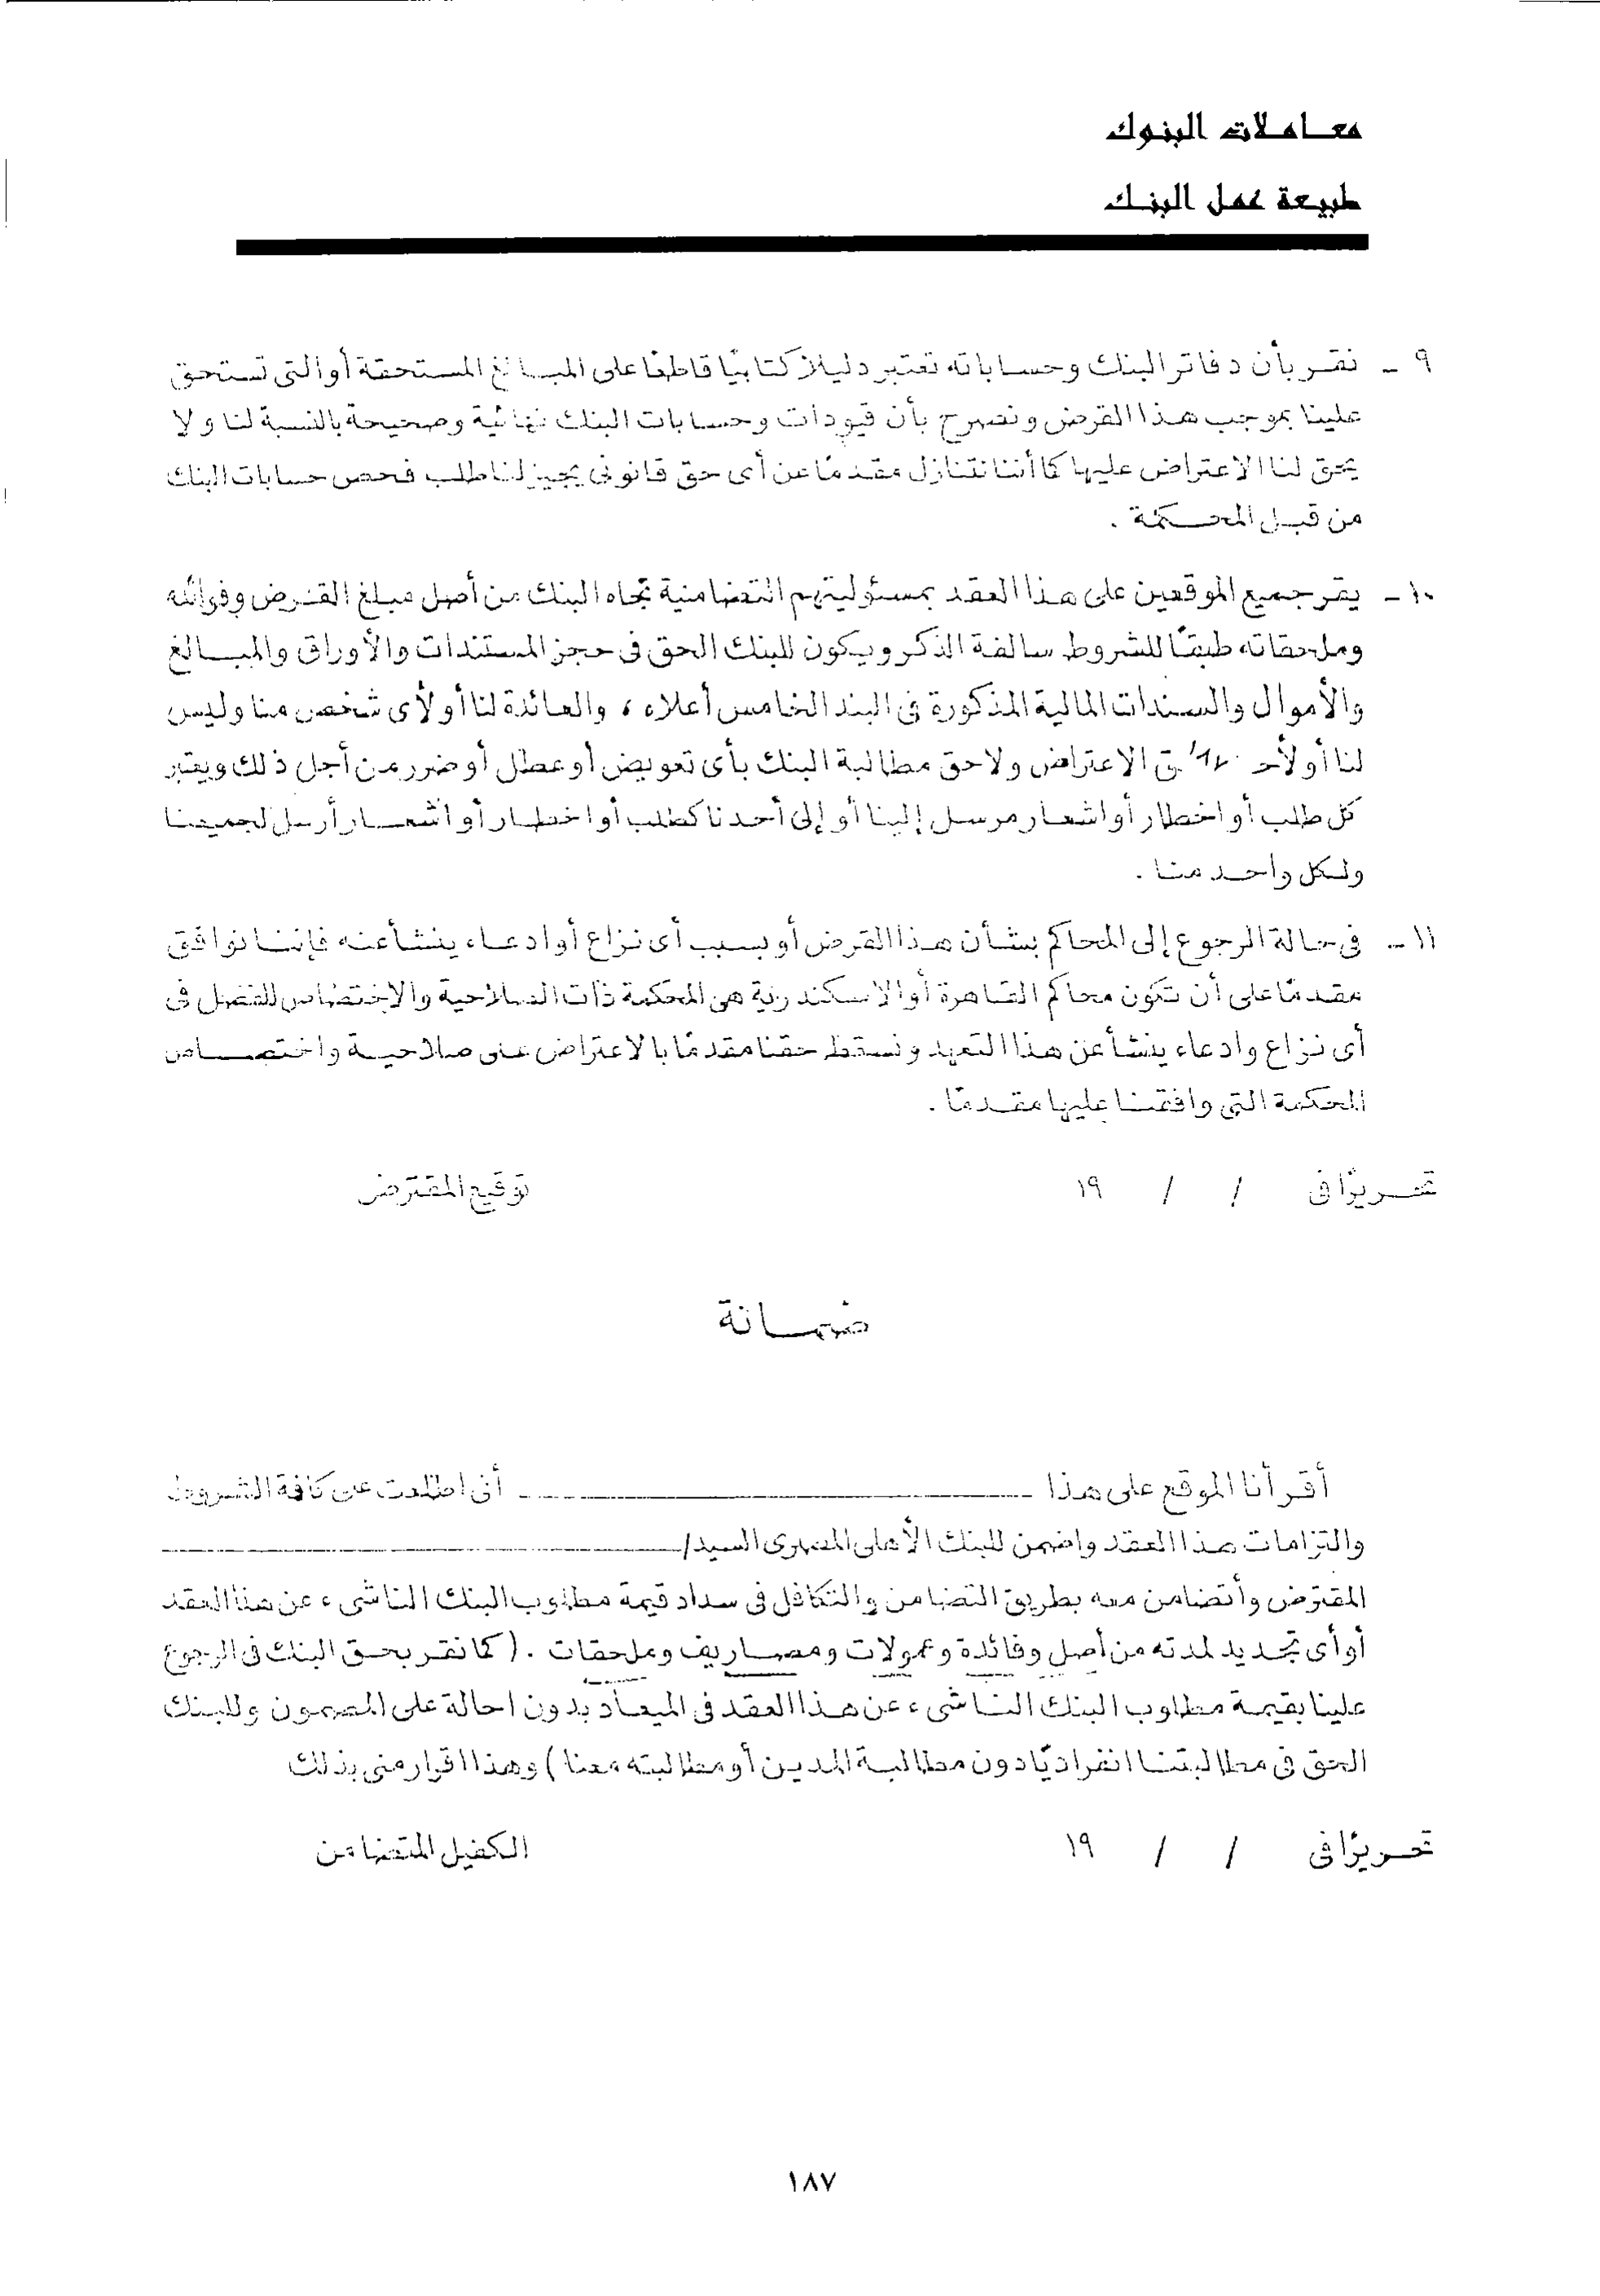 معاملات البنوك
طبيعة عمل البنك
٩ - نقر بأن دفاتر البنك وحساباته تعتبر دليلاً كتابيًا قاطعًا على المبالغ المستحقة أو التى تستحق
علينا بموجب هذا القرض ونصرح بأن قيودات وحسابات البنك نهائية وصحيحة بالنسبة لنا ولا
يحق لنا الاعتراض عليها كما أننا نتنازل مقدمًا عن أى حق قانونى يجيز لنا طلب فحص حسابات البنك
من قبل المحكمة .
١٠ - يقر جميع الموقعين على هذا العقد بمسئوليتهم التضامنية تجاه البنك من أصل مبلغ القرض وفوائده
وملحقاته طبقًا للشروط سالفة الذكر ويكون للبنك الحق فى حجز المستندات والأوراق والمبالغ
والأموال والسندات المالية المذكورة فى البند الخامس أعلاه ، والعائدة لنا أو لأى شخص منا وليس
لنا أو لأحد الاعتراض ولا حق مطالبة البنك بأى تعويض أو عطل أو ضرر من أجل ذلك ويعتبر
كل طلب أو اخطار أو اشعار مرسل إلينا أو إلى أحدنا كطلب أو اخطار أو اشعار أرسل لجميعنا
ولكل واحد منا .
١١ - فى حالة الرجوع إلى المحاكم بشأن هذا القرض أو بسبب أى نزاع أو ادعاء ينشأ عنه فإننا نوافق
مقدمًا على أن تكون محاكم القاهرة أو الاسكندرية هى المحكمة ذات الصلاحية والإختصاص للفصل فى
أى نزاع وادعاء ينشأ عن هذا التعهد ونسقط حقنا مقدمًا بالاعتراض على صلاحية واختصاص
المحكمة التى وافقنا عليها مقدمًا .
تحريرًا فى / / ١٩ توقيع المقترض
ضمانة
أقر أنا الموقع على هذا ــــــــــــــــــــ أنى اطلعت على كافة الشروط
والتزامات هذا العقد واضمن للبنك الأهلى المصرى السيد/ــــــــــــــــــــ
المقترض وأتضامن معه بطريق التضامن والتكافل فى سداد قيمة مطلوب البنك الناشىء عن هذا العقد
أو أى تجديد لمدته من أصل وفائدة وعمولات ومصاريف وملحقات . ( كما نقر بحق البنك فى الرجوع
علينا بقيمة مطلوب البنك الناشىء عن هذا العقد فى الميعاد بدون احالة على المضمون وللبنك
الحق فى مطالبتنا انفراديًا دون مطالبة المدين أو مطالبته معنا ) وهذا اقرار منى بذلك
تحريرًا فى / / ١٩ الكفيل المتضامن
١٨٧